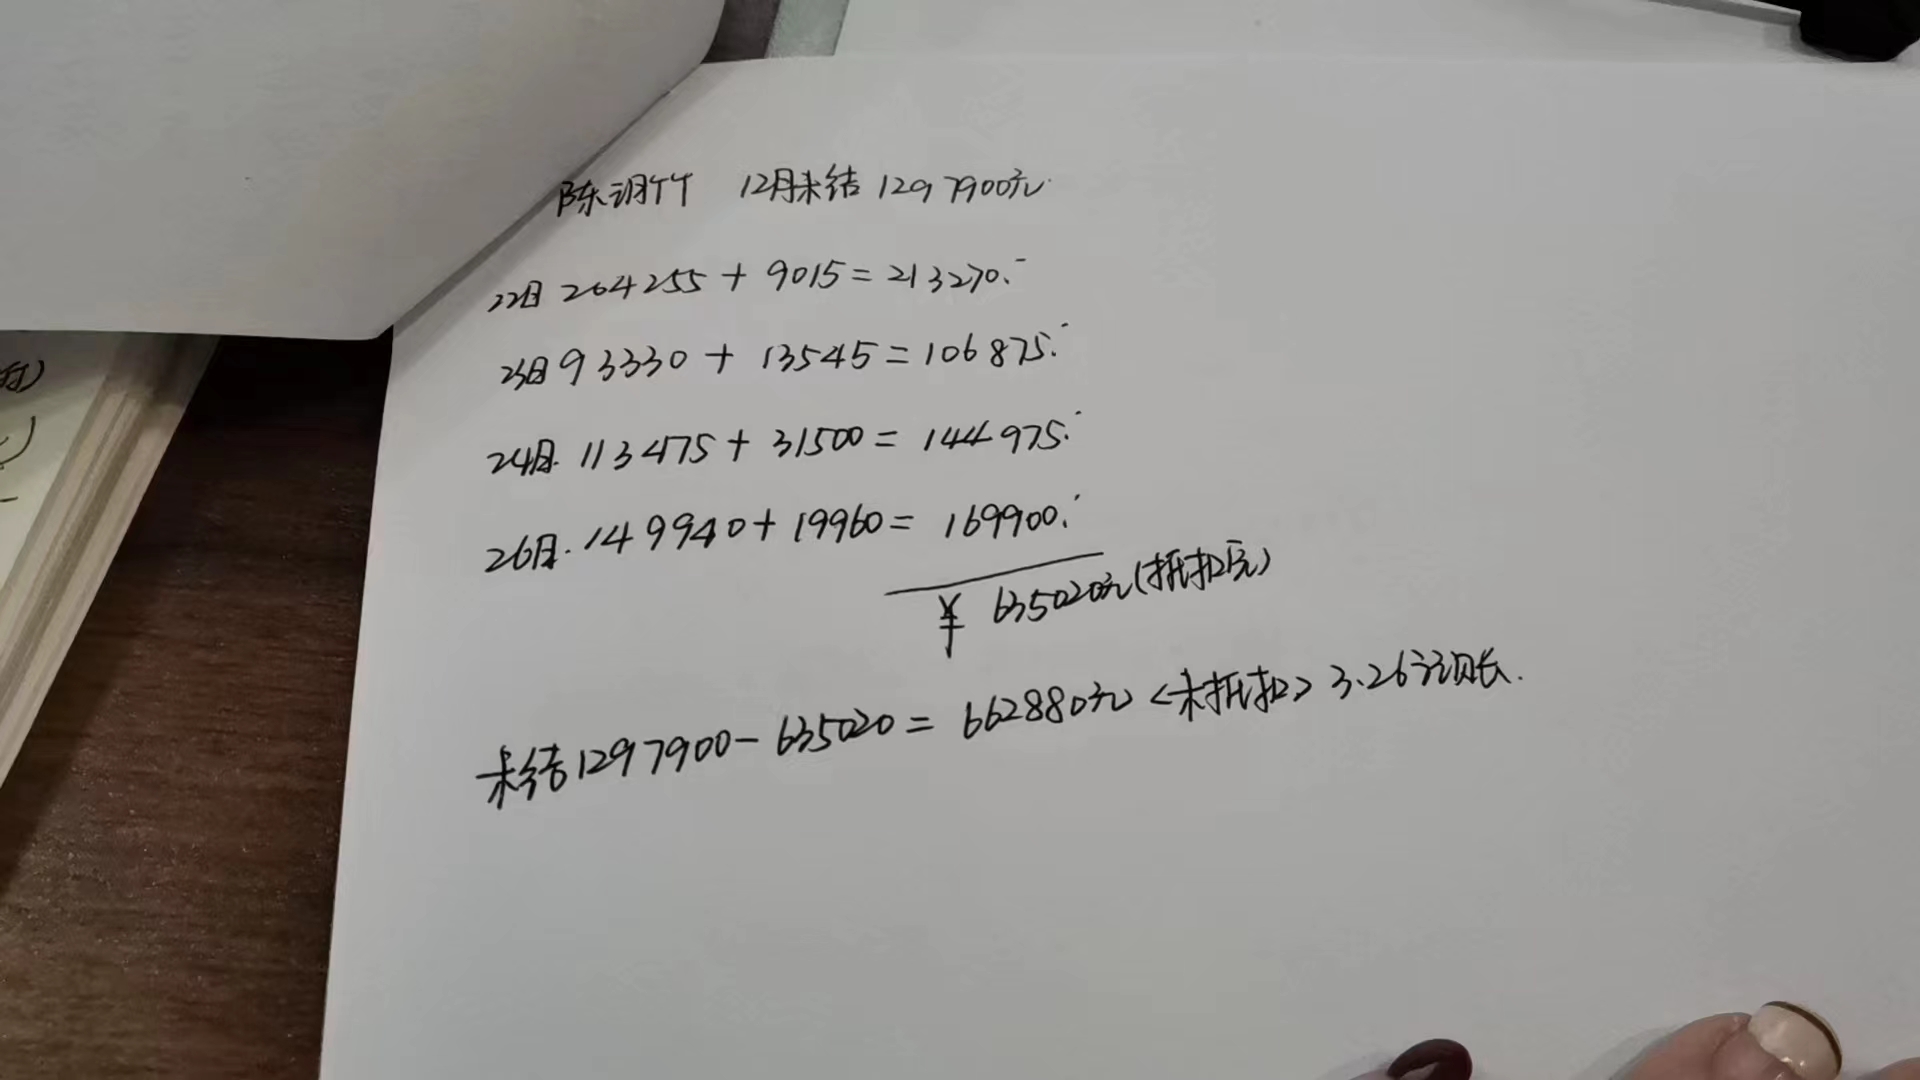 陈调竹 12月未结 1297900元.
22日 204255 + 9015 = 213270.-
23日 93330 + 13545 = 106875.-
24日. 113475 + 31500 = 144975.-
26日. 149940 + 19960 = 169900.-
¥ 635020元(抵扣完)
未结1297900 - 635020 = 662880元 <未抵扣> 3.26